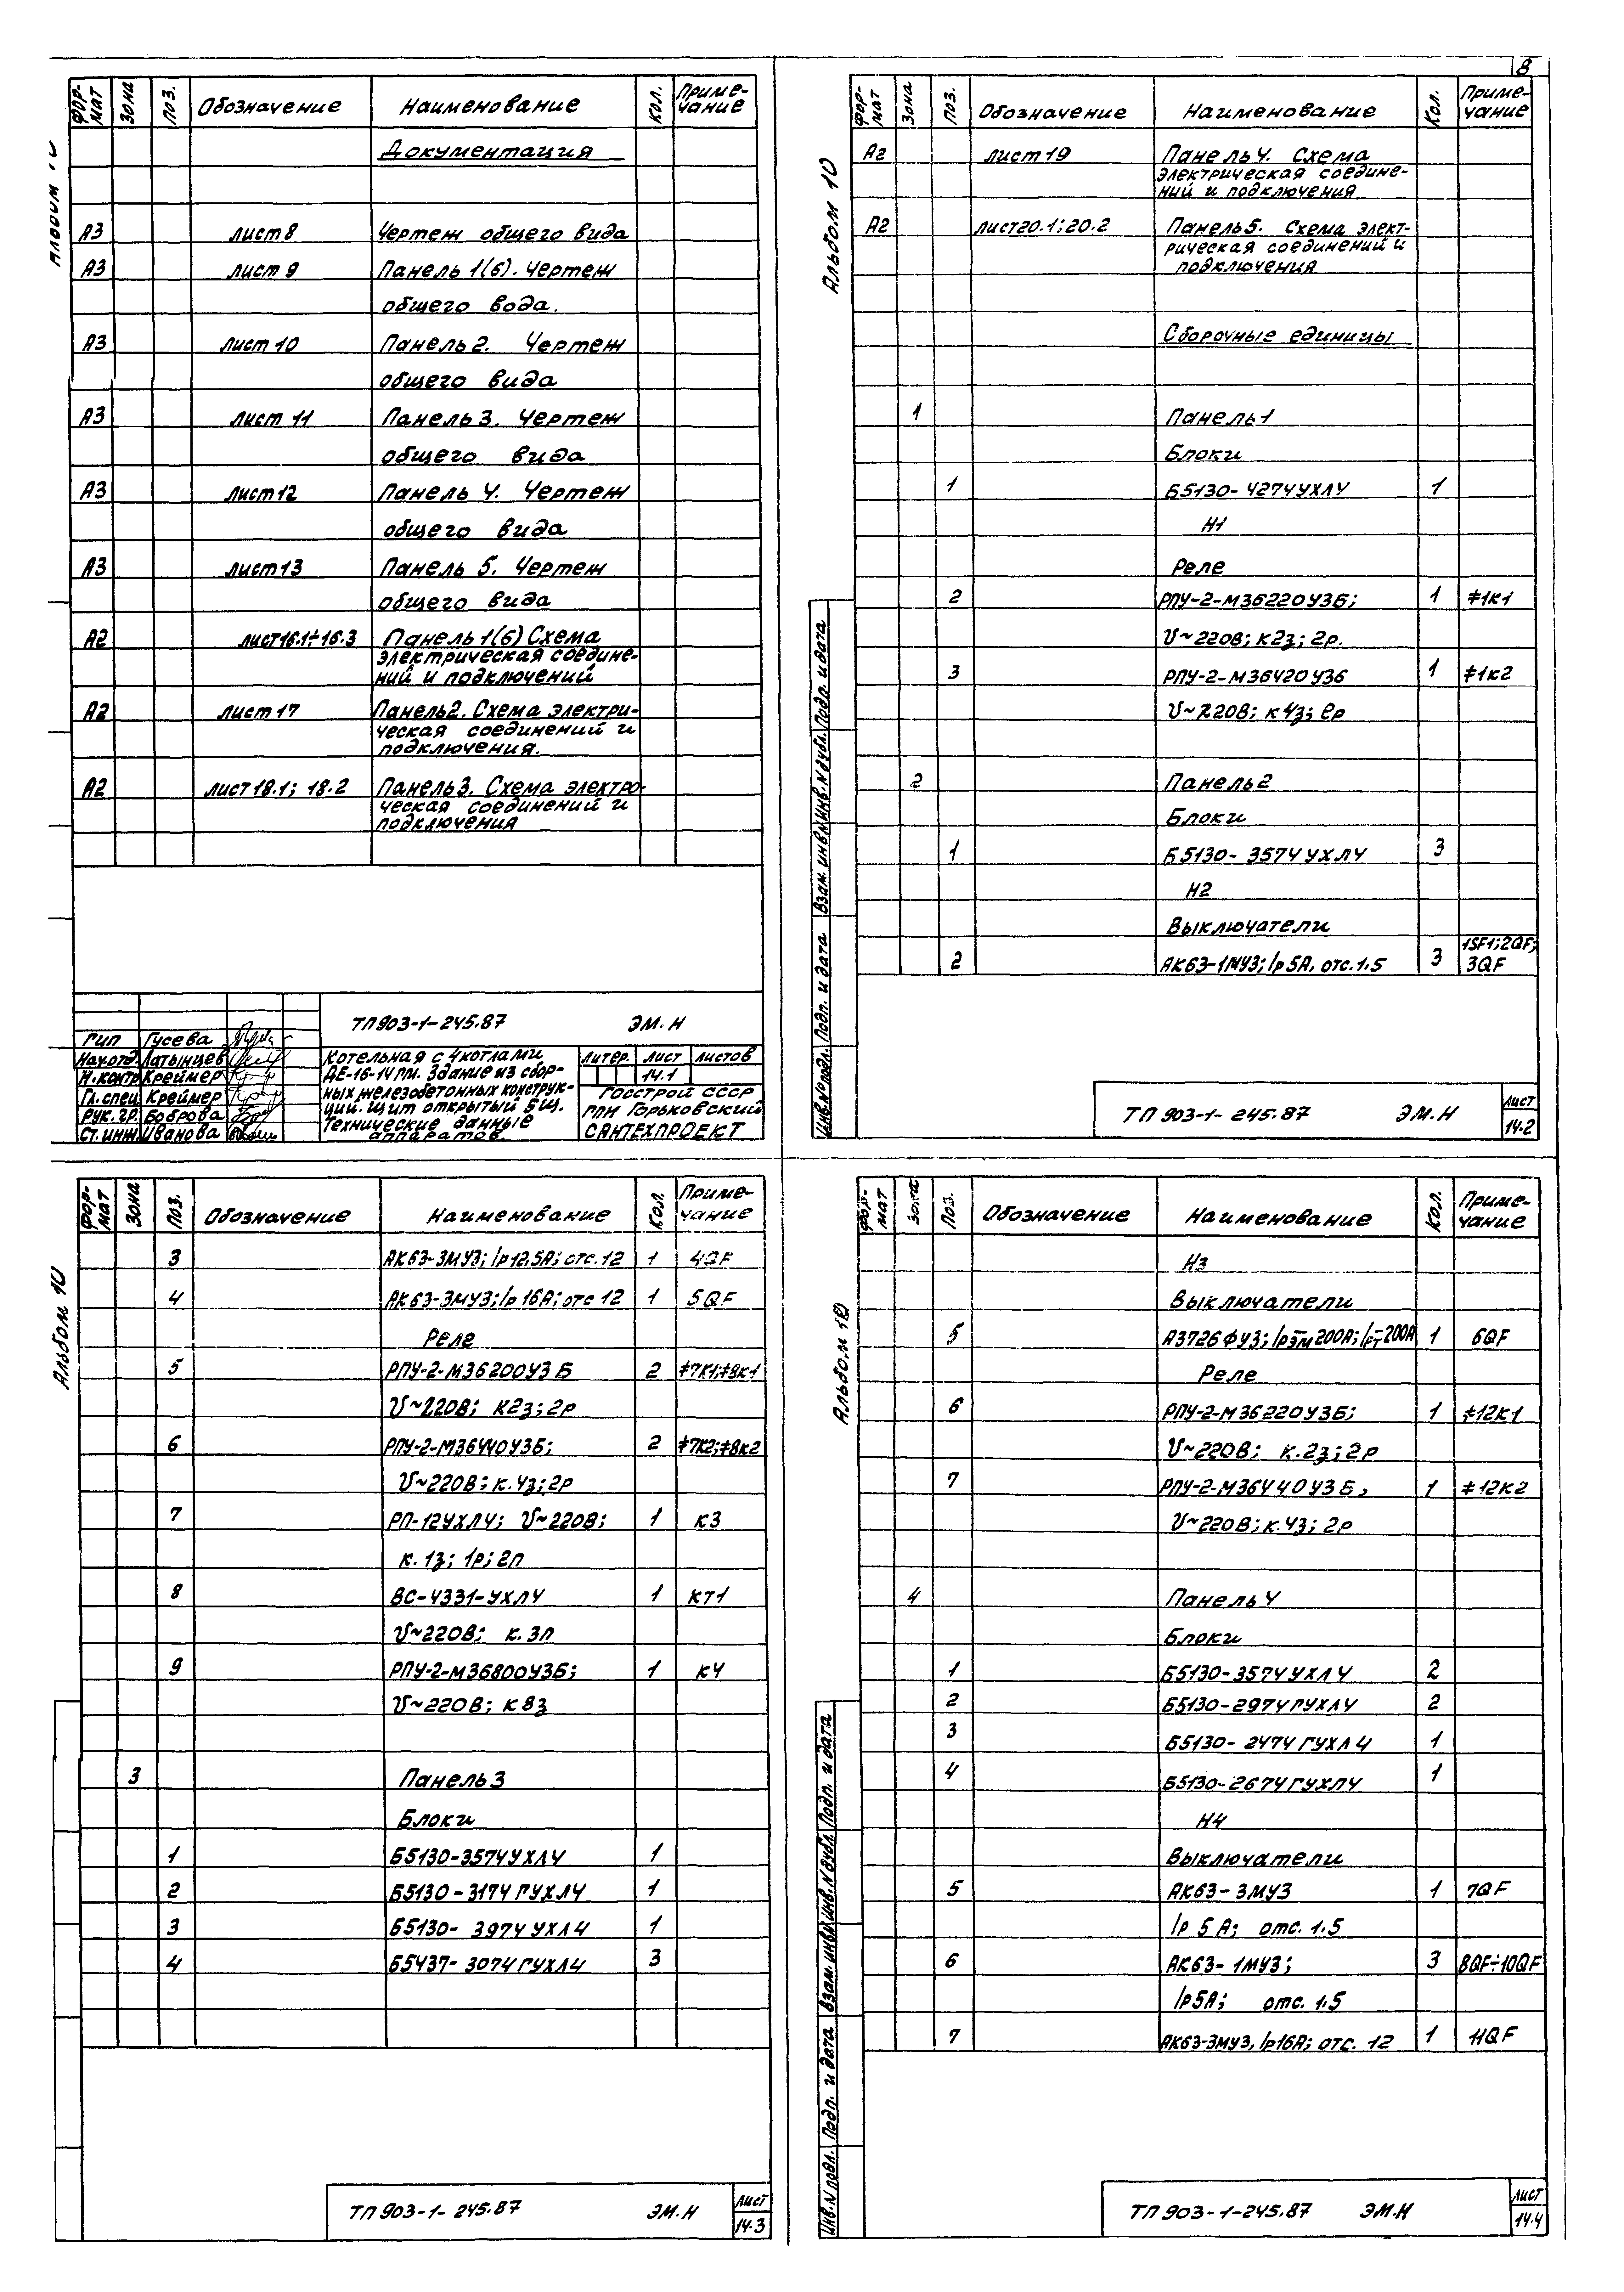 8
Альбом 10
Фор-мат Зона Поз. Обозначение Наименование Кол. Приме-чание
Документация
А3 лист 8 Чертеж общего вида
А3 лист 9 Панель 1(6). Чертеж
общего вода.
А3 лист 10 Панель 2. Чертеж
общего вида
А3 лист 11 Панель 3. Чертеж
общего вида
А3 лист 12 Панель 4. Чертеж
общего вида
А3 лист 13 Панель 5. Чертеж
общего вида
А2 лист 16.1÷16.3 Панель 1(6) Схема
электрическая соедине-
ний и подключений
А2 лист 17 Панель 2. Схема электри-
ческая соединений и
подключения.
А2 лист 18.1; 18.2 Панель 3. Схема электро-
ческая соединений и
подключения
ТП 903-1-245.87 ЭМ.Н
ГИП Гусева
Нач.отд. Латынцев
Н.контр Креймер
Гл.спец. Креймер
Рук.гр. Боброва
Ст.инж. Иванова
Котельная с 4 котлами
ДЕ-16-14ГМ. Здание из сбор-
ных железобетонных конструк-
ций. Щит открытый 5Щ.
Технические данные
аппаратов.
Литер. Лист Листов
14.1
Госстрой СССР
ГПИ Горьковский
САНТЕХПРОЕКТ
Альбом 10
Фор-мат Зона Поз. Обозначение Наименование Кол. Приме-чание
А2 лист 19 Панель 4. Схема
электрическая соедине-
ний и подключения
А2 лист 20.1; 20.2 Панель 5. Схема элект-
рическая соединений и
подключения
Сборочные единицы
1 Панель 1
Блоки
1 Б5130-4274УХЛ4 1
Н1
Реле
2 РПУ-2-М36220У3Б; 1 ≠1К1
U~220В; К2з; 2р.
3 РПУ-2-М36420У3б 1 ≠1К2
U~220В; К4з; 2р
2 Панель 2
Блоки
1 Б5130-3574УХЛ4 3
Н2
Выключатели
2 АК63-1МУ3; Iр 5А, отс. 1,5 3 1SF1; 2QF; 3QF
Инв.№ подл. Подп. и дата Взам. инв.N Инв.N дубл. Подп. и дата
ТП 903-1-245.87 ЭМ.Н Лист
14.2
Альбом 10
Фор-мат Зона Поз. Обозначение Наименование Кол. Приме-чание
3 АК63-3МУ3; Iр12,5А; отс. 12 1 4QF
4 АК63-3МУ3; Iр 16А; отс 12 1 5QF
Реле
5 РПУ-2-М36200У3Б 2 ≠7К1; ≠8К1
U~220В; К2з; 2р
6 РПУ-2-М36440У3Б; 2 ≠7К2; ≠8К2
U~220В; к. 4з; 2р
7 РП-12УХЛ4; U~220В; 1 К3
к. 1з; 1р; 2п
8 ВС-4331-УХЛ4 1 КТ1
U~220В; к. 3п
9 РПУ-2-М36800У3Б; 1 К4
U~220В; К 8з
3 Панель 3
Блоки
1 Б5130-3574УХЛ4 1
2 Б5130-3174ГУХЛ4 1
3 Б5130-3974УХЛ4 1
4 Б5437-3074ГУХЛ4 3
ТП 903-1-245.87 ЭМ.Н Лист
14.3
Альбом 10
Фор-мат Зона Поз. Обозначение Наименование Кол. Приме-чание
Н3
Выключатели
5 А3726ФУ3; Iрэм-200А; Iрт-200А 1 6QF
Реле
6 РПУ-2-М36220У3Б; 1 ≠12К1
U~220В; к. 2з; 2р
7 РПУ-2-М36440У3Б, 1 ≠12К2
U~220В; к. 4з; 2р
4 Панель 4
Блоки
1 Б5130-3574УХЛ4 2
2 Б5130-2974ГУХЛ4 2
3 Б5130-2474ГУХЛ4 1
4 Б5130-2674ГУХЛ4 1
Н4
Выключатели
5 АК63-3МУ3 1 7QF
Iр 5А; отс. 1,5
6 АК63-1МУ3; 3 8QF÷10QF
Iр5А; отс. 1,5
7 АК63-3МУ3, Iр16А; отс. 12 1 11QF
Инв.N подл. Подп. и дата Взам. инв.N Инв.N дубл. Подп. и дата
ТП 903-1-245.87 ЭМ.Н Лист
14.4